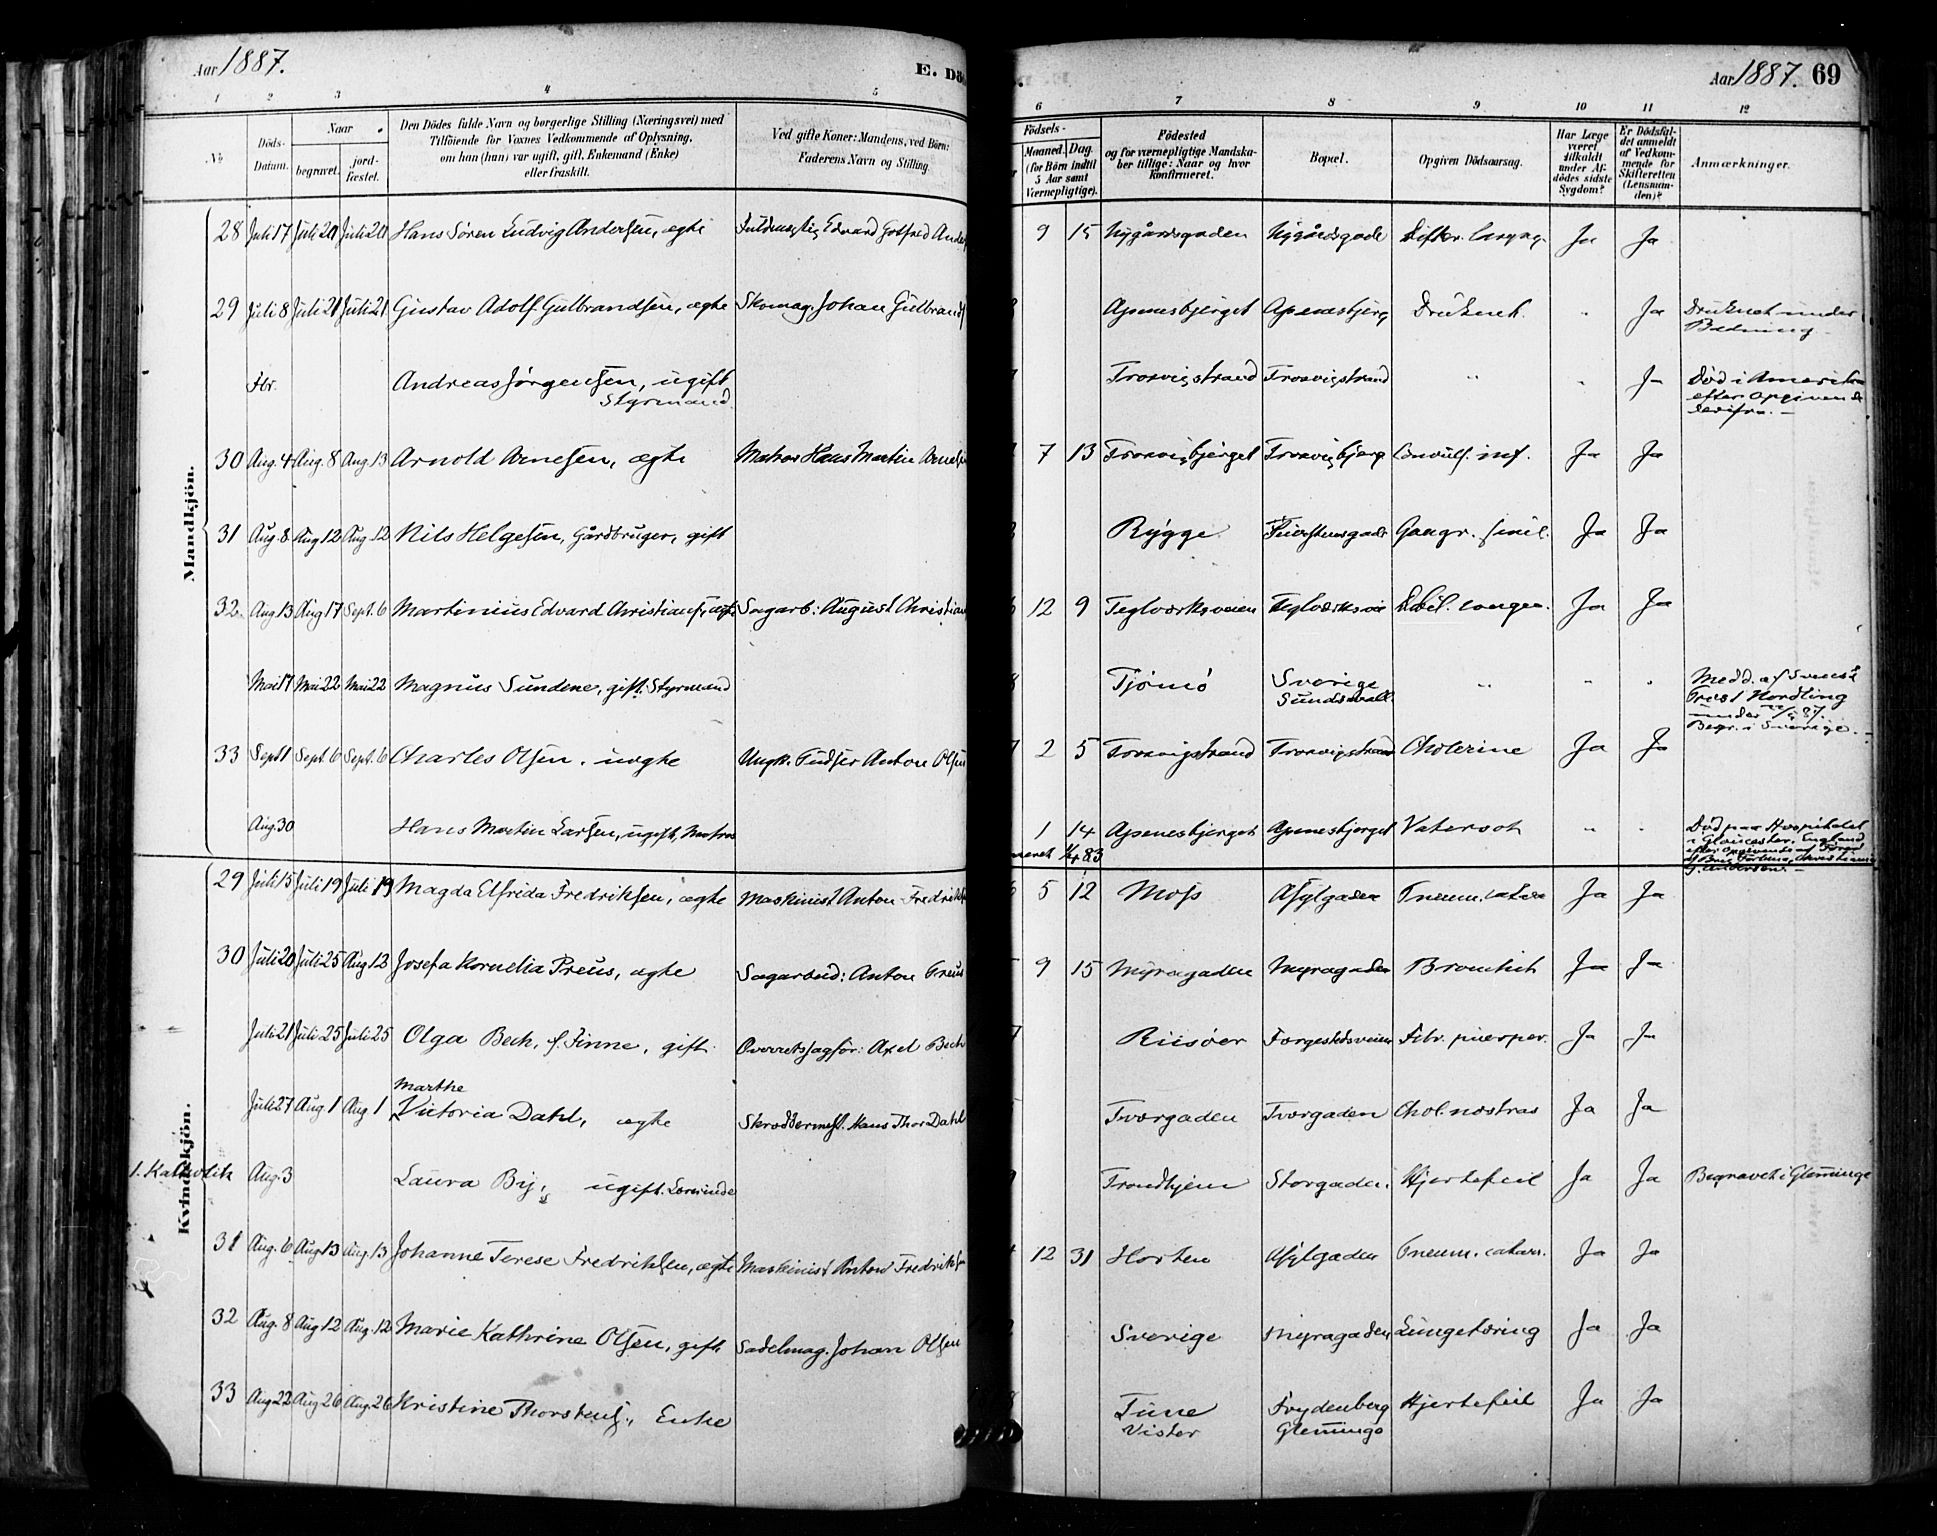 Aar 1887. E. Dö
1 2 3 4 5
№ Döds-Datum. Naar begravet. jordfæstet. Den Dödes fulde Navn og borgerlige Stilling (Næringsvei) med Tilföiende for Voxnes Vedkommende af Oplysning, om han (hun) var ugift, gift, Enkemand (Enke) eller fraskilt. Ved gifte Koner: Mandens, ved Börn: Faderens Navn og Stilling.
Mandkjön.
28 Juli 17 Juli 20 Juli 20 Hans Søren Ludvig Andersen, ægte Fuldmægtig Edvard Gotfred Anders
29 Juli 8 Juli 21 Juli 21 Gustav Adolf Gulbrandsen, ægte Skomag. Johan Gulbrands
Fbr. Andreas Jørgensen, ugift
Styrmand
30 Aug. 4 Aug. 8 Aug. 13 Arnold Arnesen, ægte Matros Hans Martin Arnesen
31 Aug. 8 Aug 12 Aug. 12 Nils Helgesen, Gårdbruger, gift
32. Aug 13 Aug 17 Sept. 6 Martinius Edvard Christians., ægte Sagarb: August Christian
Mai 17 Mai 22 Mai 22 Magnus Sundene, gift. Styrmand
33 Sept 1 Sept. 6 Sept. 6 Charles Olsen. uægte Ungk. Anton Olsen
Aug. 30 Hans Martin Larsen, ugift, Matros
Kvindekjön.
29 Juli 15 Juli 19 Juli 19 Magda Elfrida Fredriksen, ægte Maskinist Anton Fredriks
30 Juli 20 Juli 25 Aug. 13 Josefa Kornelia Preus, ægte Sagarbeid: Anton Preus
Juli 21 Juli 25 Juli 25 Olga Bech, f. Finne, gift. Overretssagfør: Axel Bech
Marthe
Juli 27 Aug. 1 Aug 1 Victoria Dahl, ægte Skræddermest. Hans Thor Dahl
1. Katholik Aug. 3 Laura By, ugift. Lærerinde
31 Aug. 6 Aug 13 Aug. 13 Johanne Terese Fredriksen, ægte Maskinist Anton Fredriks
32 Aug. 8 Aug 12 Aug. 12 Marie Kathrine Olsen, gift Sadelmag. Johan Olsen
33 Aug 22 Aug 26 Aug. 26 Kristine Thorstens., Enke
Aar 1887. 69
6 7 8 9 10 11 12
Födsels- Maaned. Dag. (for Börn indtil 5 Aar samt Værnepligtige). Födested og for værnepligtige Mandskaber tillige: Naar og hvor Konfirmeret. Bopæl. Opgiven Dödsaarsag. Har Læge været tilkaldt under Afdödes sidste Sygdom? Er Dödsfaldet anmeldt af Vedkommende for Skifteretten (Lensmanden)? Anmærkninger.
9 15 Nygårdsgaden Nygårdsgade Difter. laryng. Ja Ja
Apenesbjerget Apenesbjerg Druknet. " Ja Druknet under
Badning.
Trosvigstrand Trosvigstrand " " Ja Død i Amerika
efter Opgivende
derifra. —
7 13 Trosvigbjerget Trosvigbjerg Convuls. inf. Ja Ja
Rygge Gangr. senil. Ja Ja
12 9 Teglværksveien Teglværksvei Debil. congen. Ja Ja
Tjømø Sverige " " " Medd. af Svensk
Sundsvall. Præst Nordling
under
Begr. i Sverige. —
2 5 Trosvigstrand Trosvigstrand Cholerine Ja Ja
1 14 Apenesbjerget Apenesbjerget Vatersot " " Død paa Hospitalet
i Gloucester, England
83
5 12 Moss Asylgaden Pneum. catar. Ja Ja
9 15 Myragaden Myragaden Bronchit Ja Ja
Riisøer Færgestedsveien Febr. puerper. Ja Ja
Tværgaden Tværgaden Chol. nostras Ja Ja
Trondhjem Storgaden. Hjertefeil Ja Ja Begravet i Glemminge
12 31 Horten Asylgaden Pneum. catarr. Ja Ja
Sverige Myragaden Lungetæring Ja Ja
Tune Frydenberg Hjertefeil Ja Ja
Vister Glemminge